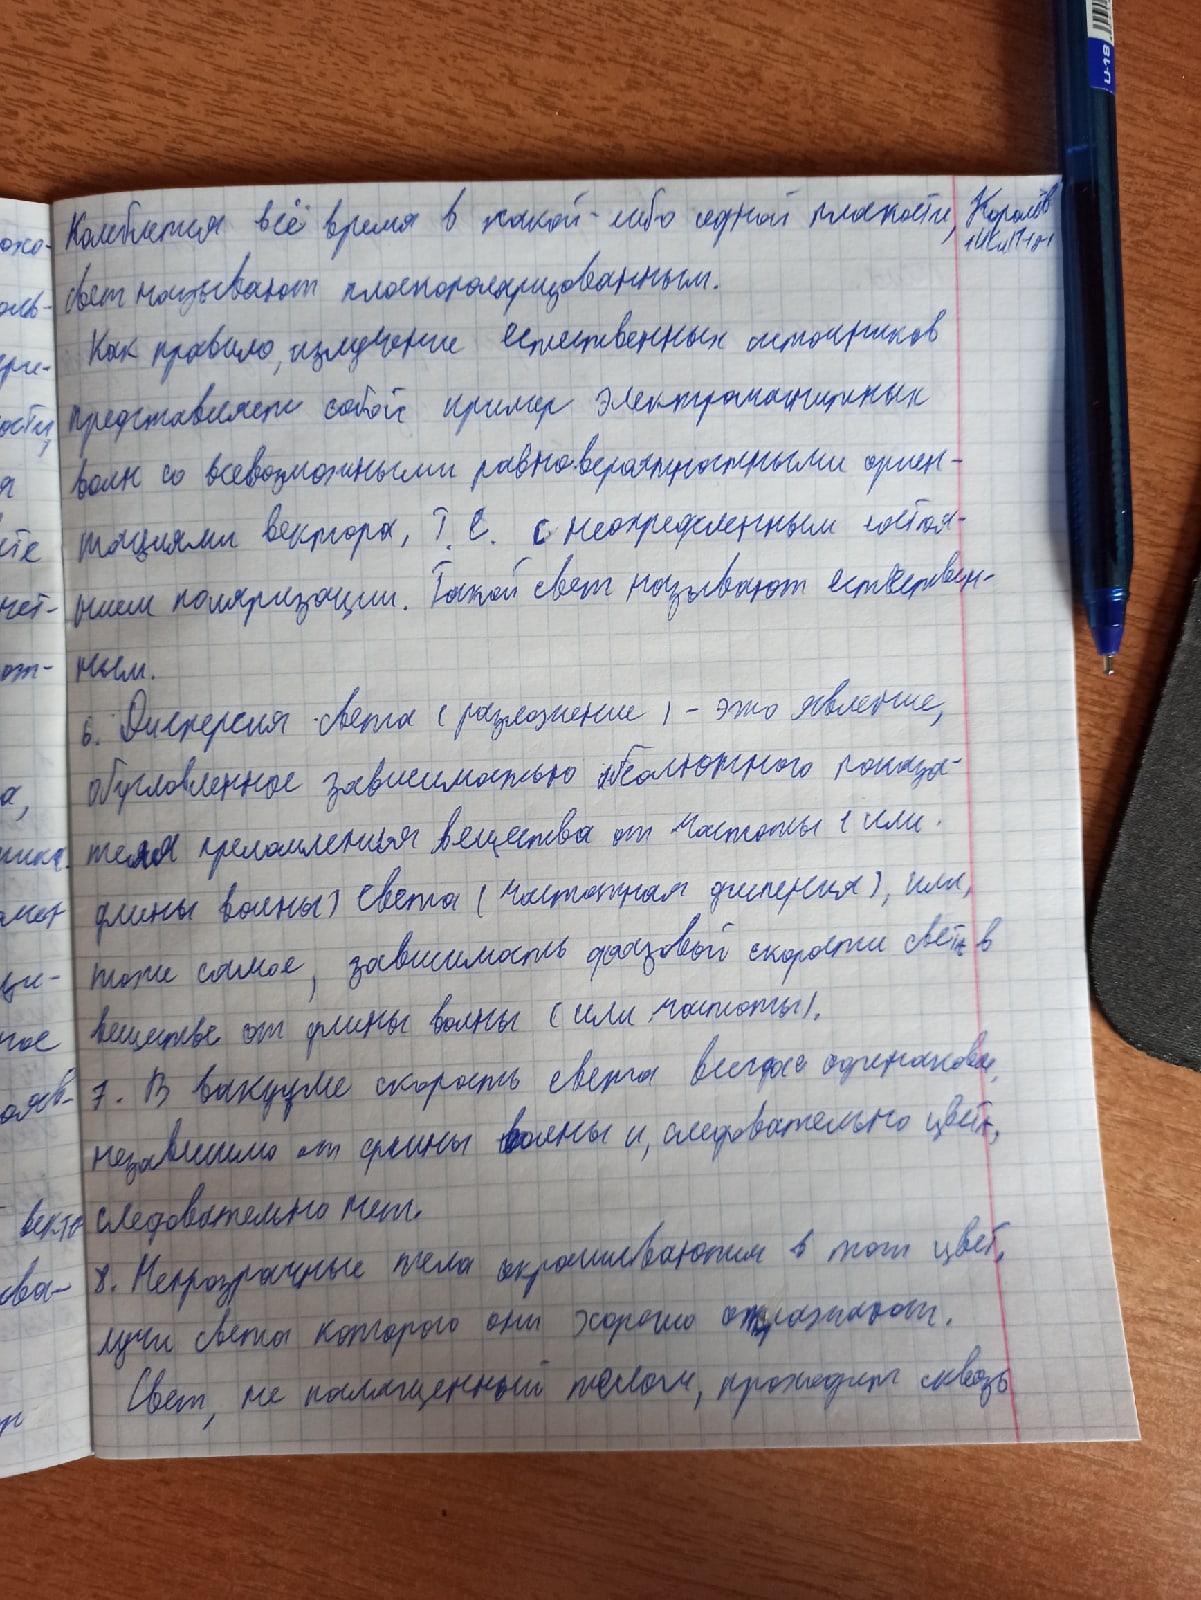 Колеблется всё время в какой-либо одной плоскости,
Королёв
свет называют плоскополяризованным.
Как правило, излучение естественных источников
представляет собой пример электромагнитных
волн со всевозможными равновероятностными ориен-
тациями вектора, т.е. с неопределенным состоя-
нием поляризации. Такой свет называют естествен-
ным.
6. Дисперсия света (разложение) - это явление,
обусловленное зависимостью абсолютного показа-
теля преломления вещества от частоты (или
длины волны) света (частотная дисперсия), или,
тоже самое, зависимость фазовой скорости света в
веществе от длины волны (или частоты).
7. В вакууме скорость света всегда одинакова,
независимо от длины волны и, следовательно цвета,
следовательно нет.
8. Непрозрачные тела окрашиваются в тот цвет,
лучи света которого они хорошо отражают.
Свет, не поглащенный телом, проходит сквозь
охо-
ори-
ости,
я
чет-
а,
ци-
ное
вект
ова-